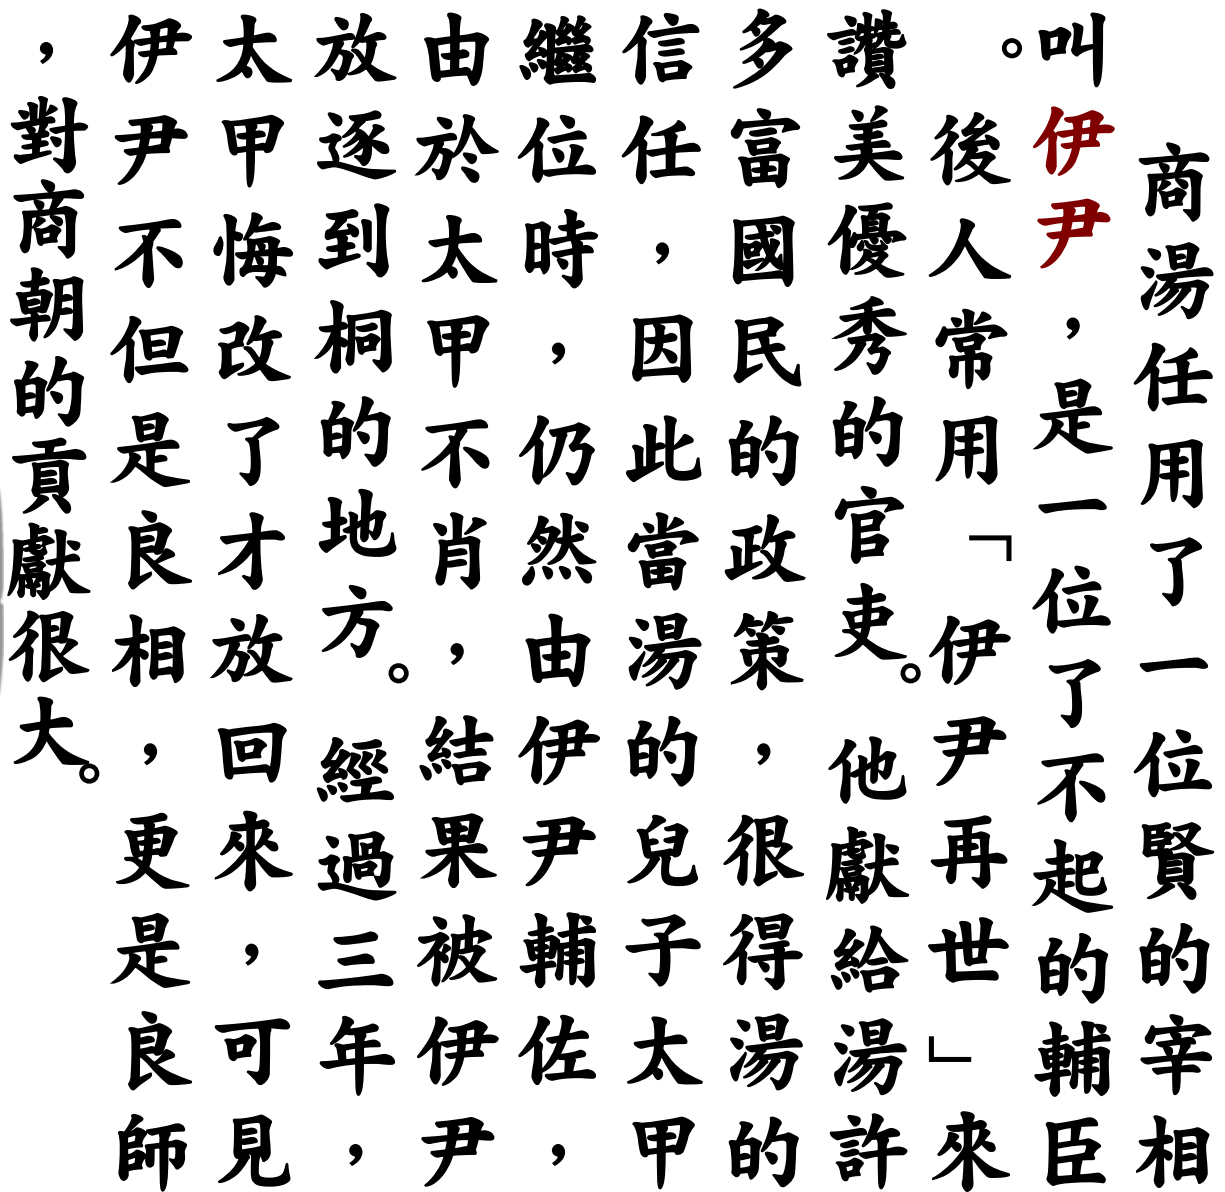 商湯任用了一位賢的宰相
叫伊尹，是一位了不起的輔臣
。後人常用「伊尹再世」來
讚美優秀的官吏。他獻給湯許
多富國民的政策，很得湯的
信任，因此當湯的兒子太甲
繼位時，仍然由伊尹輔佐，
由於太甲不肖，結果被伊尹
放逐到桐的地方。經過三年，
太甲悔改了才放回來，可見
伊尹不但是良相，更是良師
，對商朝的貢獻很大。